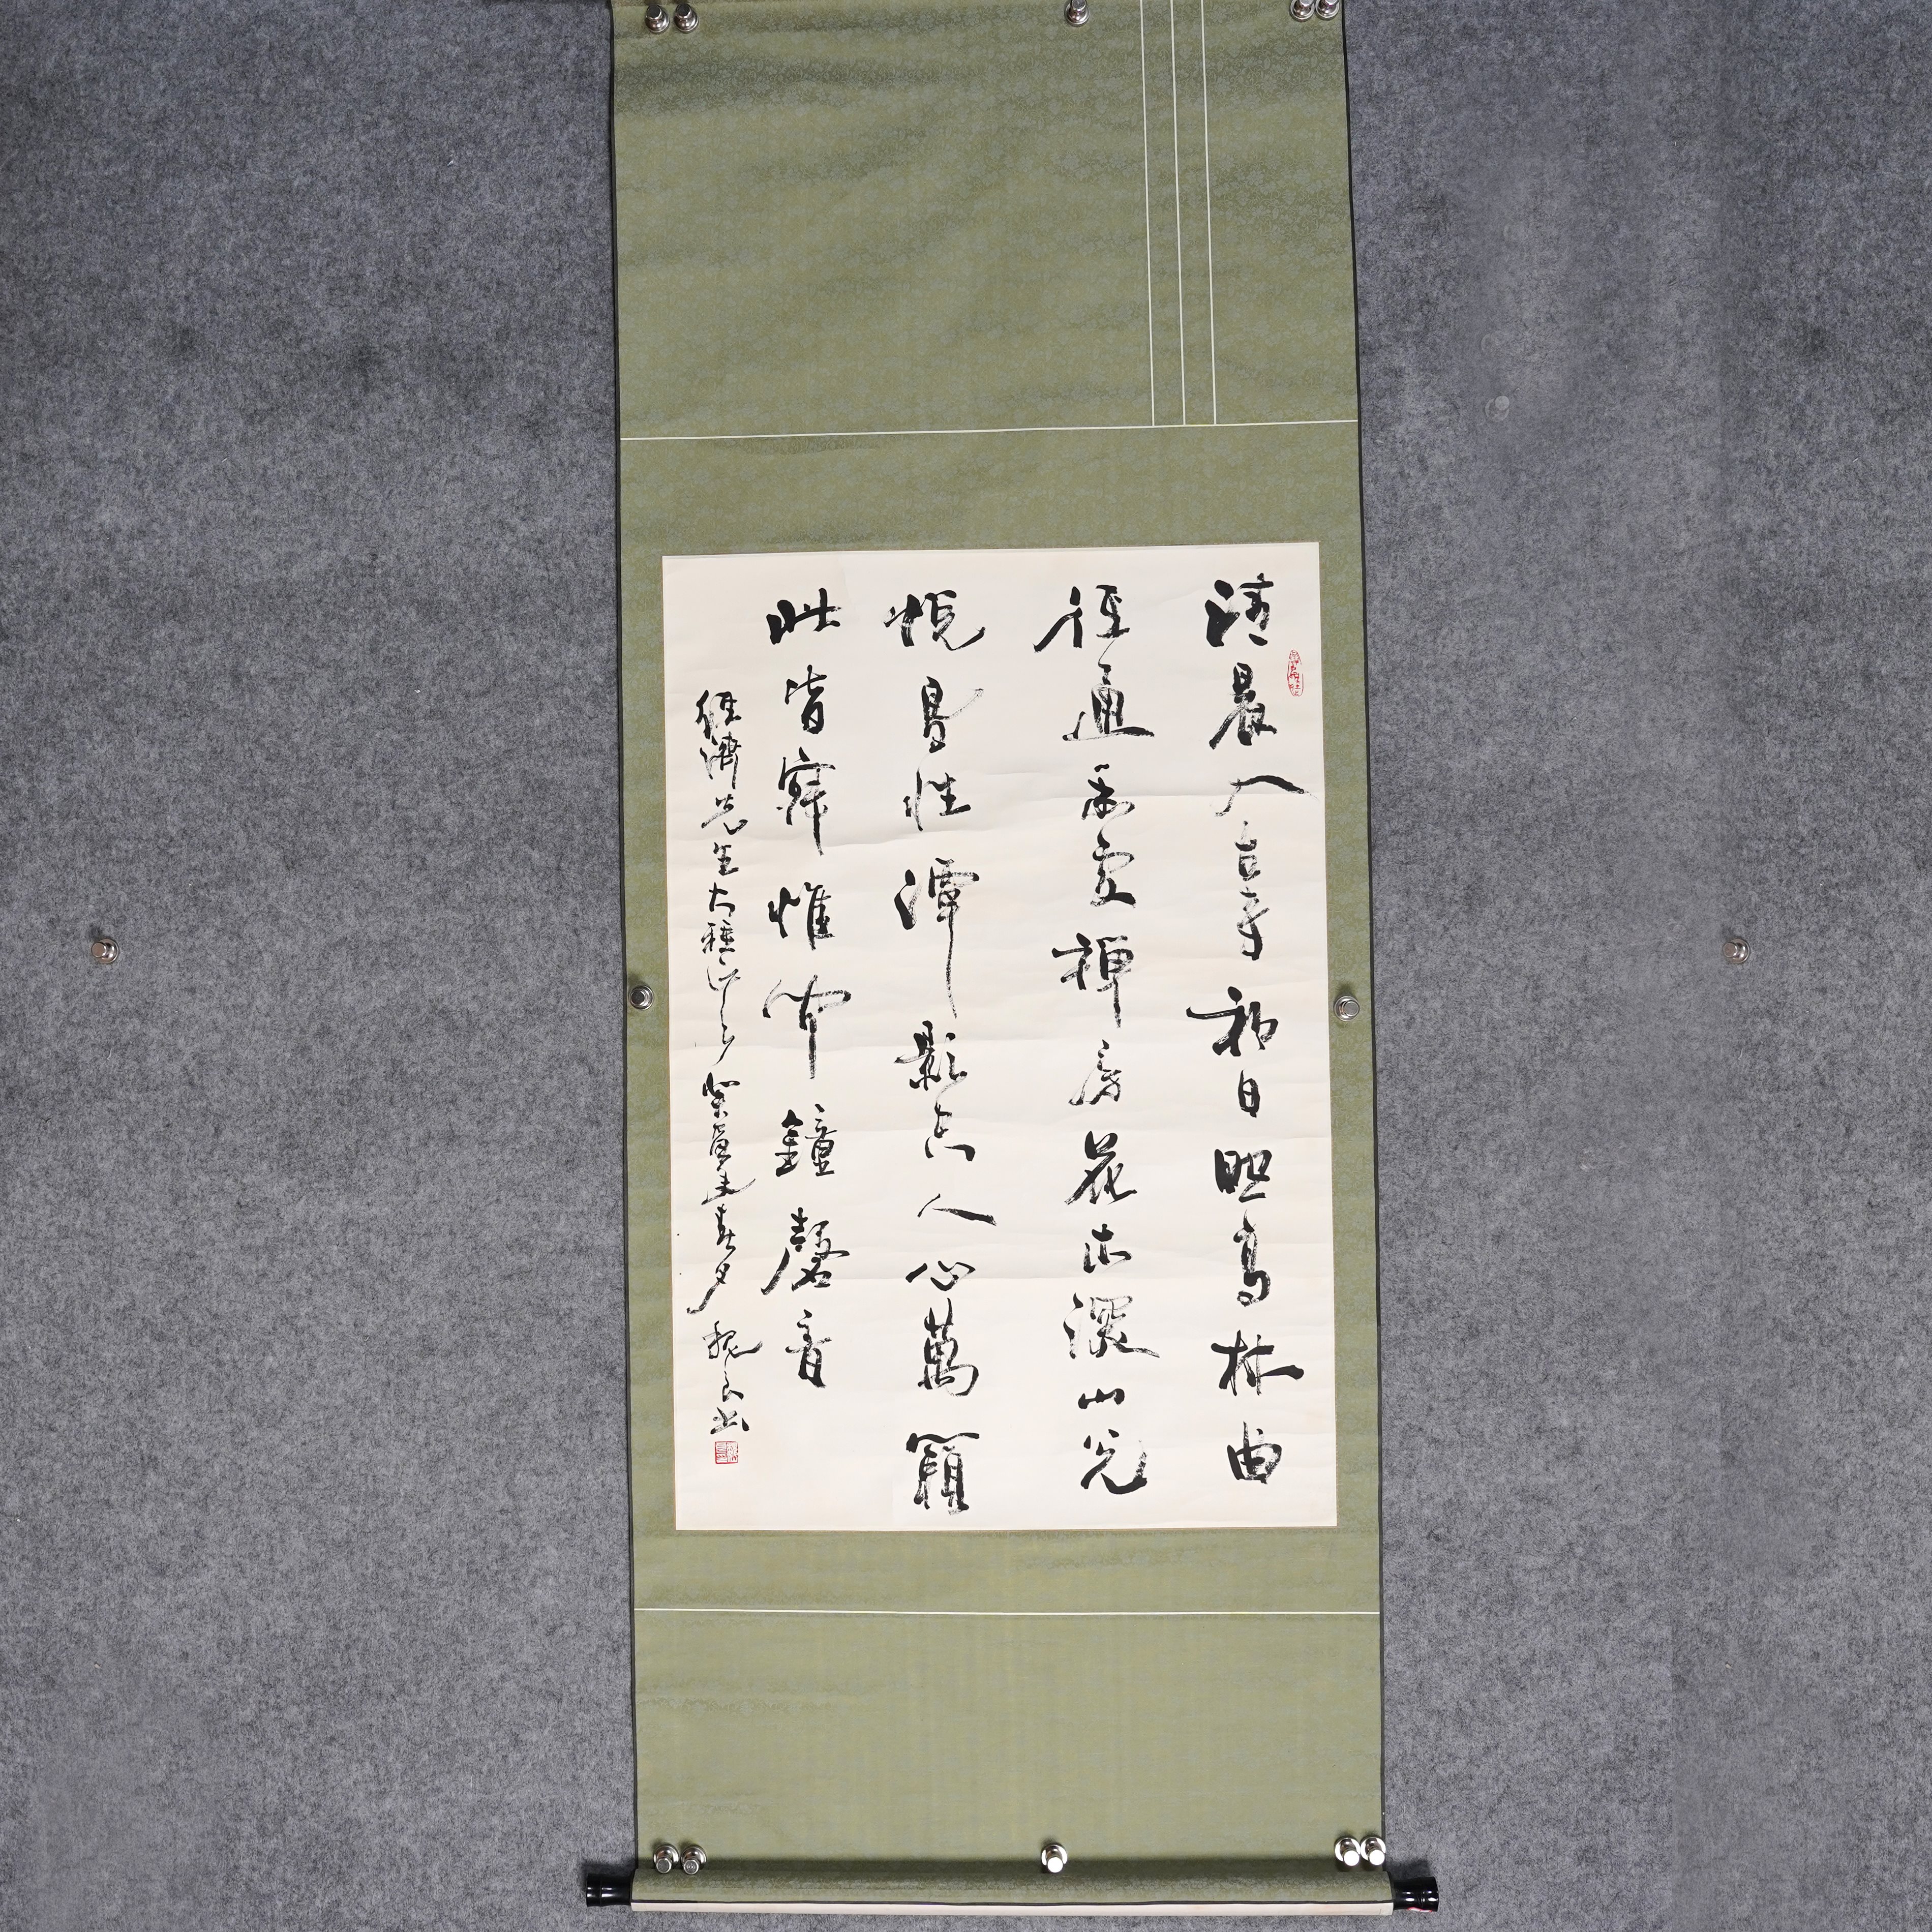 清晨入古寺初日照高林曲
徑通幽處禪房花木深山光
悅鳥性潭影空人心萬籟
此皆寂惟聞鐘磬音
經濟先生大雅正之 春夕 書